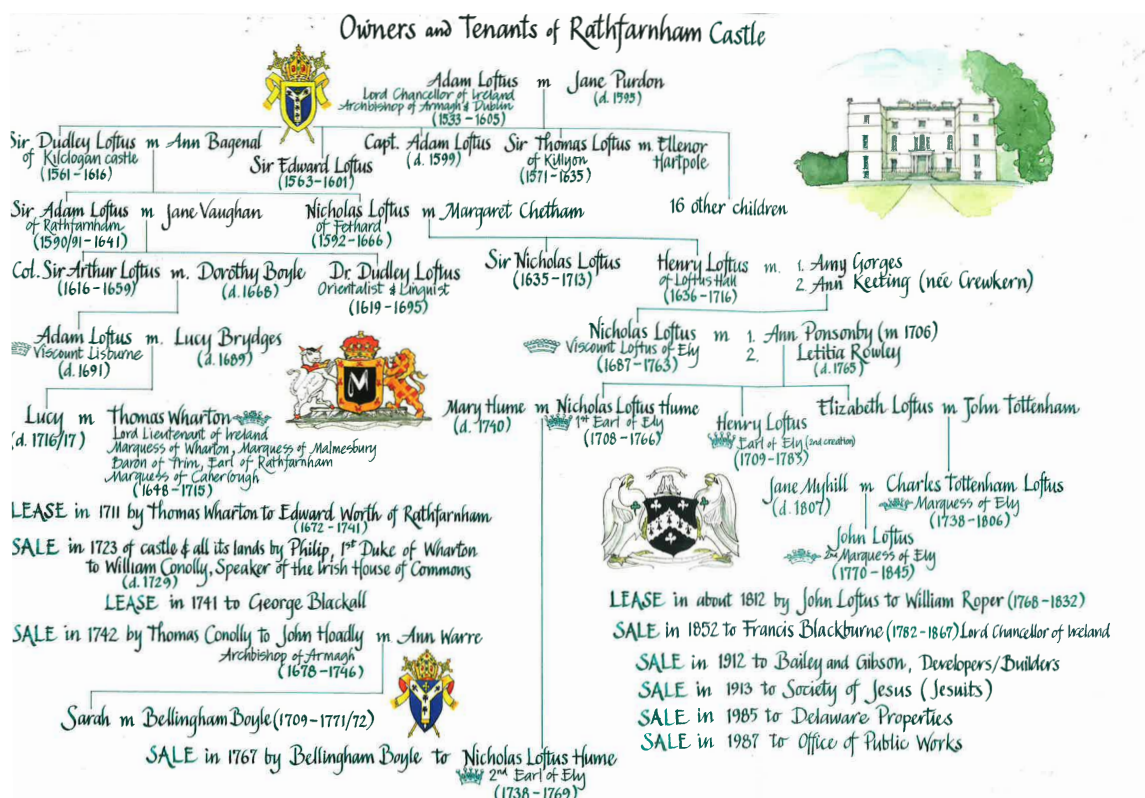 Owners and Tenants of Rathfarnham Castle
Adam Loftus m Jane Purdon
Lord Chancellor of Ireland
Archbishop of Armagh & Dublin
(1533-1605)
(d. 1595)
Sir Dudley Loftus m Ann Bagenal
of Kilclogan castle
(1561-1616)
Sir Edward Loftus
(1563-1601)
Capt. Adam Loftus
(d. 1599)
Sir Thomas Loftus m. Ellenor Hartpole
of Killyon
(1571-1635)
16 other children
Sir Adam Loftus m Jane Vaughan
of Rathfarnham
(1590/91-1641)
Nicholas Loftus m Margaret Chetham
of Fethard
(1592-1666)
Col. Sir Arthur Loftus m. Dorothy Boyle
(1616-1659)
(d. 1668)
Dr. Dudley Loftus
Orientalist & Linguist
(1619-1695)
Sir Nicholas Loftus
(1635-1713)
Henry Loftus m. 1. Amy Gorges
of Loftus Hall
(1636-1716)
2. Ann Keeting (née Crewkern)
Adam Loftus m. Lucy Brydges
Viscount Lisburne
(d. 1691)
(d. 1689)
Nicholas Loftus m 1. Ann Ponsonby (m 1706)
Viscount Loftus of Ely
(1687-1763)
2. Letitia Rowley
(d. 1765)
Lucy m Thomas Wharton
(d. 1716/17)
Lord Lieutenant of Ireland
Marquess of Wharton, Marquess of Malmesbury
Baron of Trim, Earl of Rathfarnham
Marquess of Caherlough
(1648-1715)
M
Mary Hume m Nicholas Loftus Hume
(d. 1740)
1st Earl of Ely
(1708-1766)
Henry Loftus
Earl of Ely (2nd creation)
(1709-1783)
Elizabeth Loftus m John Tottenham
Jane Myhill m Charles Tottenham Loftus
(d. 1807)
Marquess of Ely
(1738-1806)
John Loftus
2nd Marquess of Ely
(1770-1845)
LEASE in 1711 by Thomas Wharton to Edward Worth of Rathfarnham
(1672-1741)
SALE in 1723 of castle & all its lands by Philip, 1st Duke of Wharton
to William Conolly, Speaker of the Irish House of Commons
(d. 1729)
LEASE in 1741 to George Blackall
SALE in 1742 by Thomas Conolly to John Hoadly m Ann Warre
Archbishop of Armagh
(1678-1746)
Sarah m Bellingham Boyle (1709-1771/72)
SALE in 1767 by Bellingham Boyle to Nicholas Loftus Hume
2nd Earl of Ely
(1738-1769)
LEASE in about 1812 by John Loftus to William Roper (1768-1832)
SALE in 1852 to Francis Blackburne (1782-1867) Lord Chancellor of Ireland
SALE in 1912 to Bailey and Gibson, Developers/Builders
SALE in 1913 to Society of Jesus (Jesuits)
SALE in 1985 to Delaware Properties
SALE in 1987 to Office of Public Works